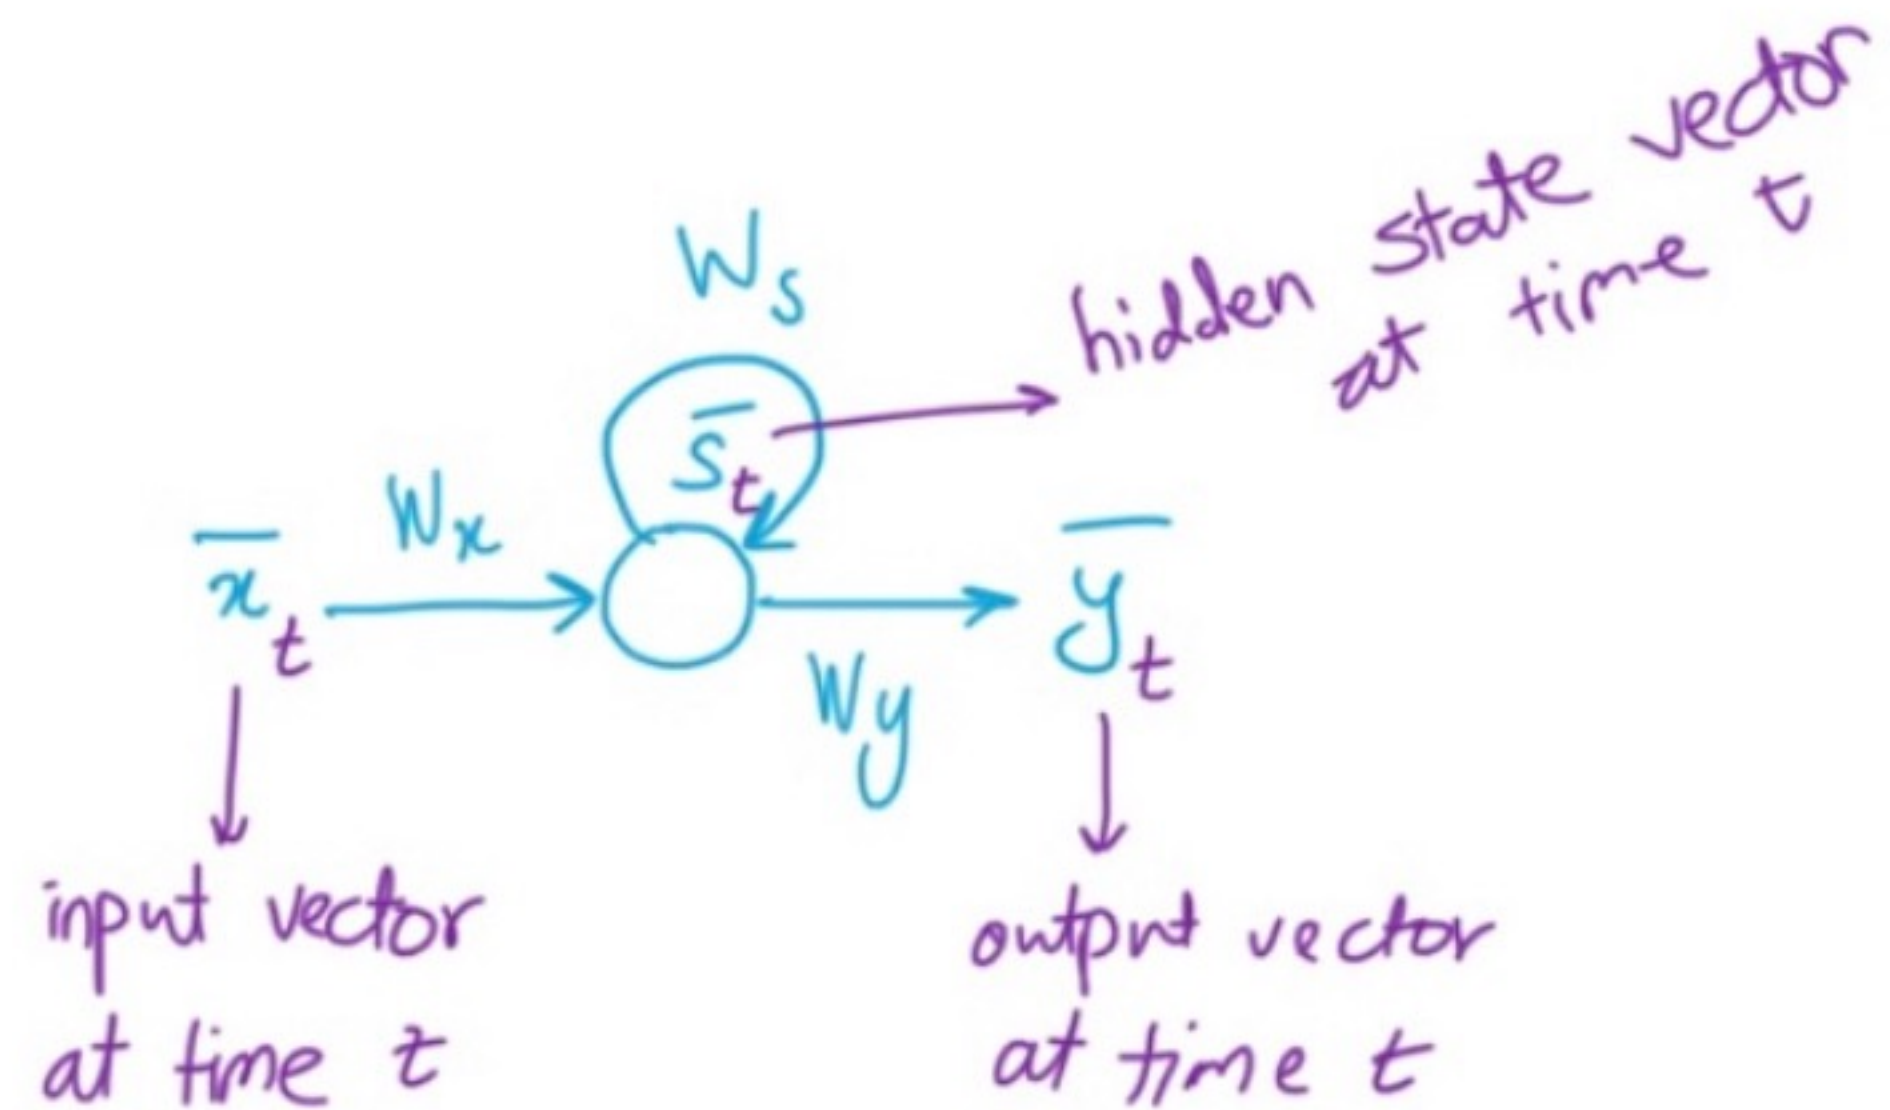 W_s
hidden state vector
at time t
s̄_t
W_x
x̄_t
ȳ_t
W_y
input vector
at time t
output vector
at time t